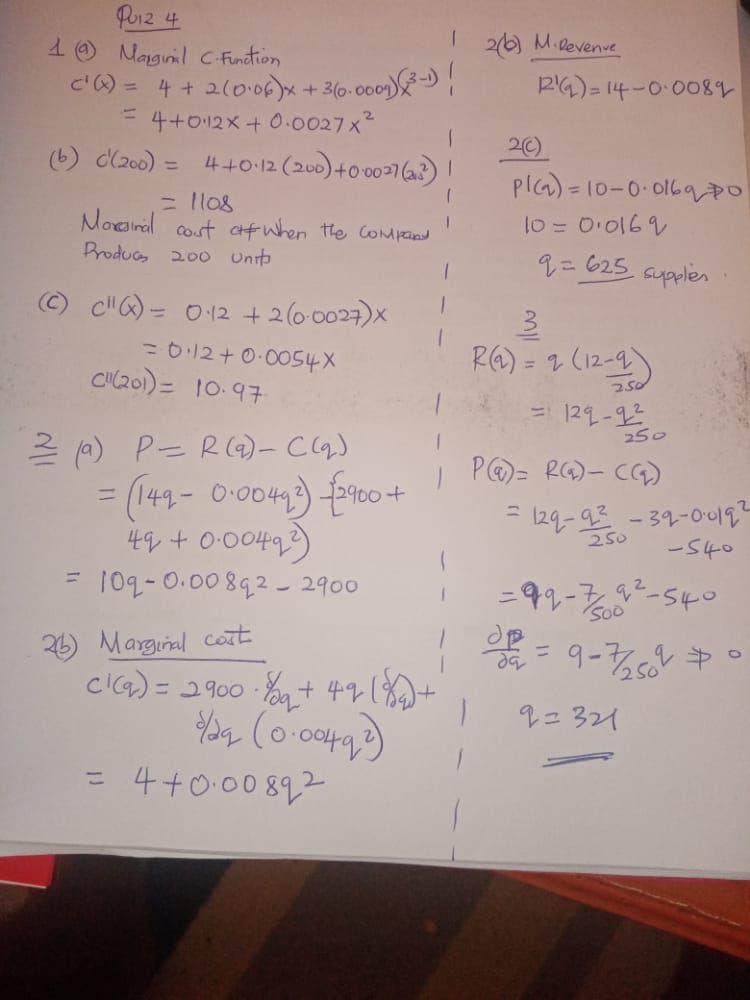 Quiz 4
1 (a) Marginal C.Function
C'(x) = 4 + 2(0.06)x + 3(0.0009)x^(3-1)
= 4+0.12x + 0.0027x²
(b) C'(200) = 4+0.12(200)+0.0027(200²)
= 1108
Marginal cost when the company
Produces 200 units
(c) C''(x) = 0.12 + 2(0.0027)x
= 0.12+0.0054x
C''(201) = 10.97
2 (a) P = R(q) - C(q)
= (14q - 0.004q²) - {2900 +
4q + 0.004q²)
= 10q-0.008q2 - 2900
2b) Marginal cost
C'(q) = 2900 · d/dq + 4q (d/dq) +
d/dq (0.004q²)
= 4+0.008q2
2(b) M.Revenue
R'(q) = 14-0.008q
2(c)
P'(q) = 10-0.016q ⇒ 0
10 = 0.016q
q = 625 supplies.
3
R(q) = q (12-q/250)
= 12q - q²/250
P(q) = R(q) - C(q)
= 12q - q²/250 - 3q - 0.01q²
-540
= 9q - 7/500 q² - 540
∂p/∂q = 9 - 7/250 q ⇒ 0
q = 321